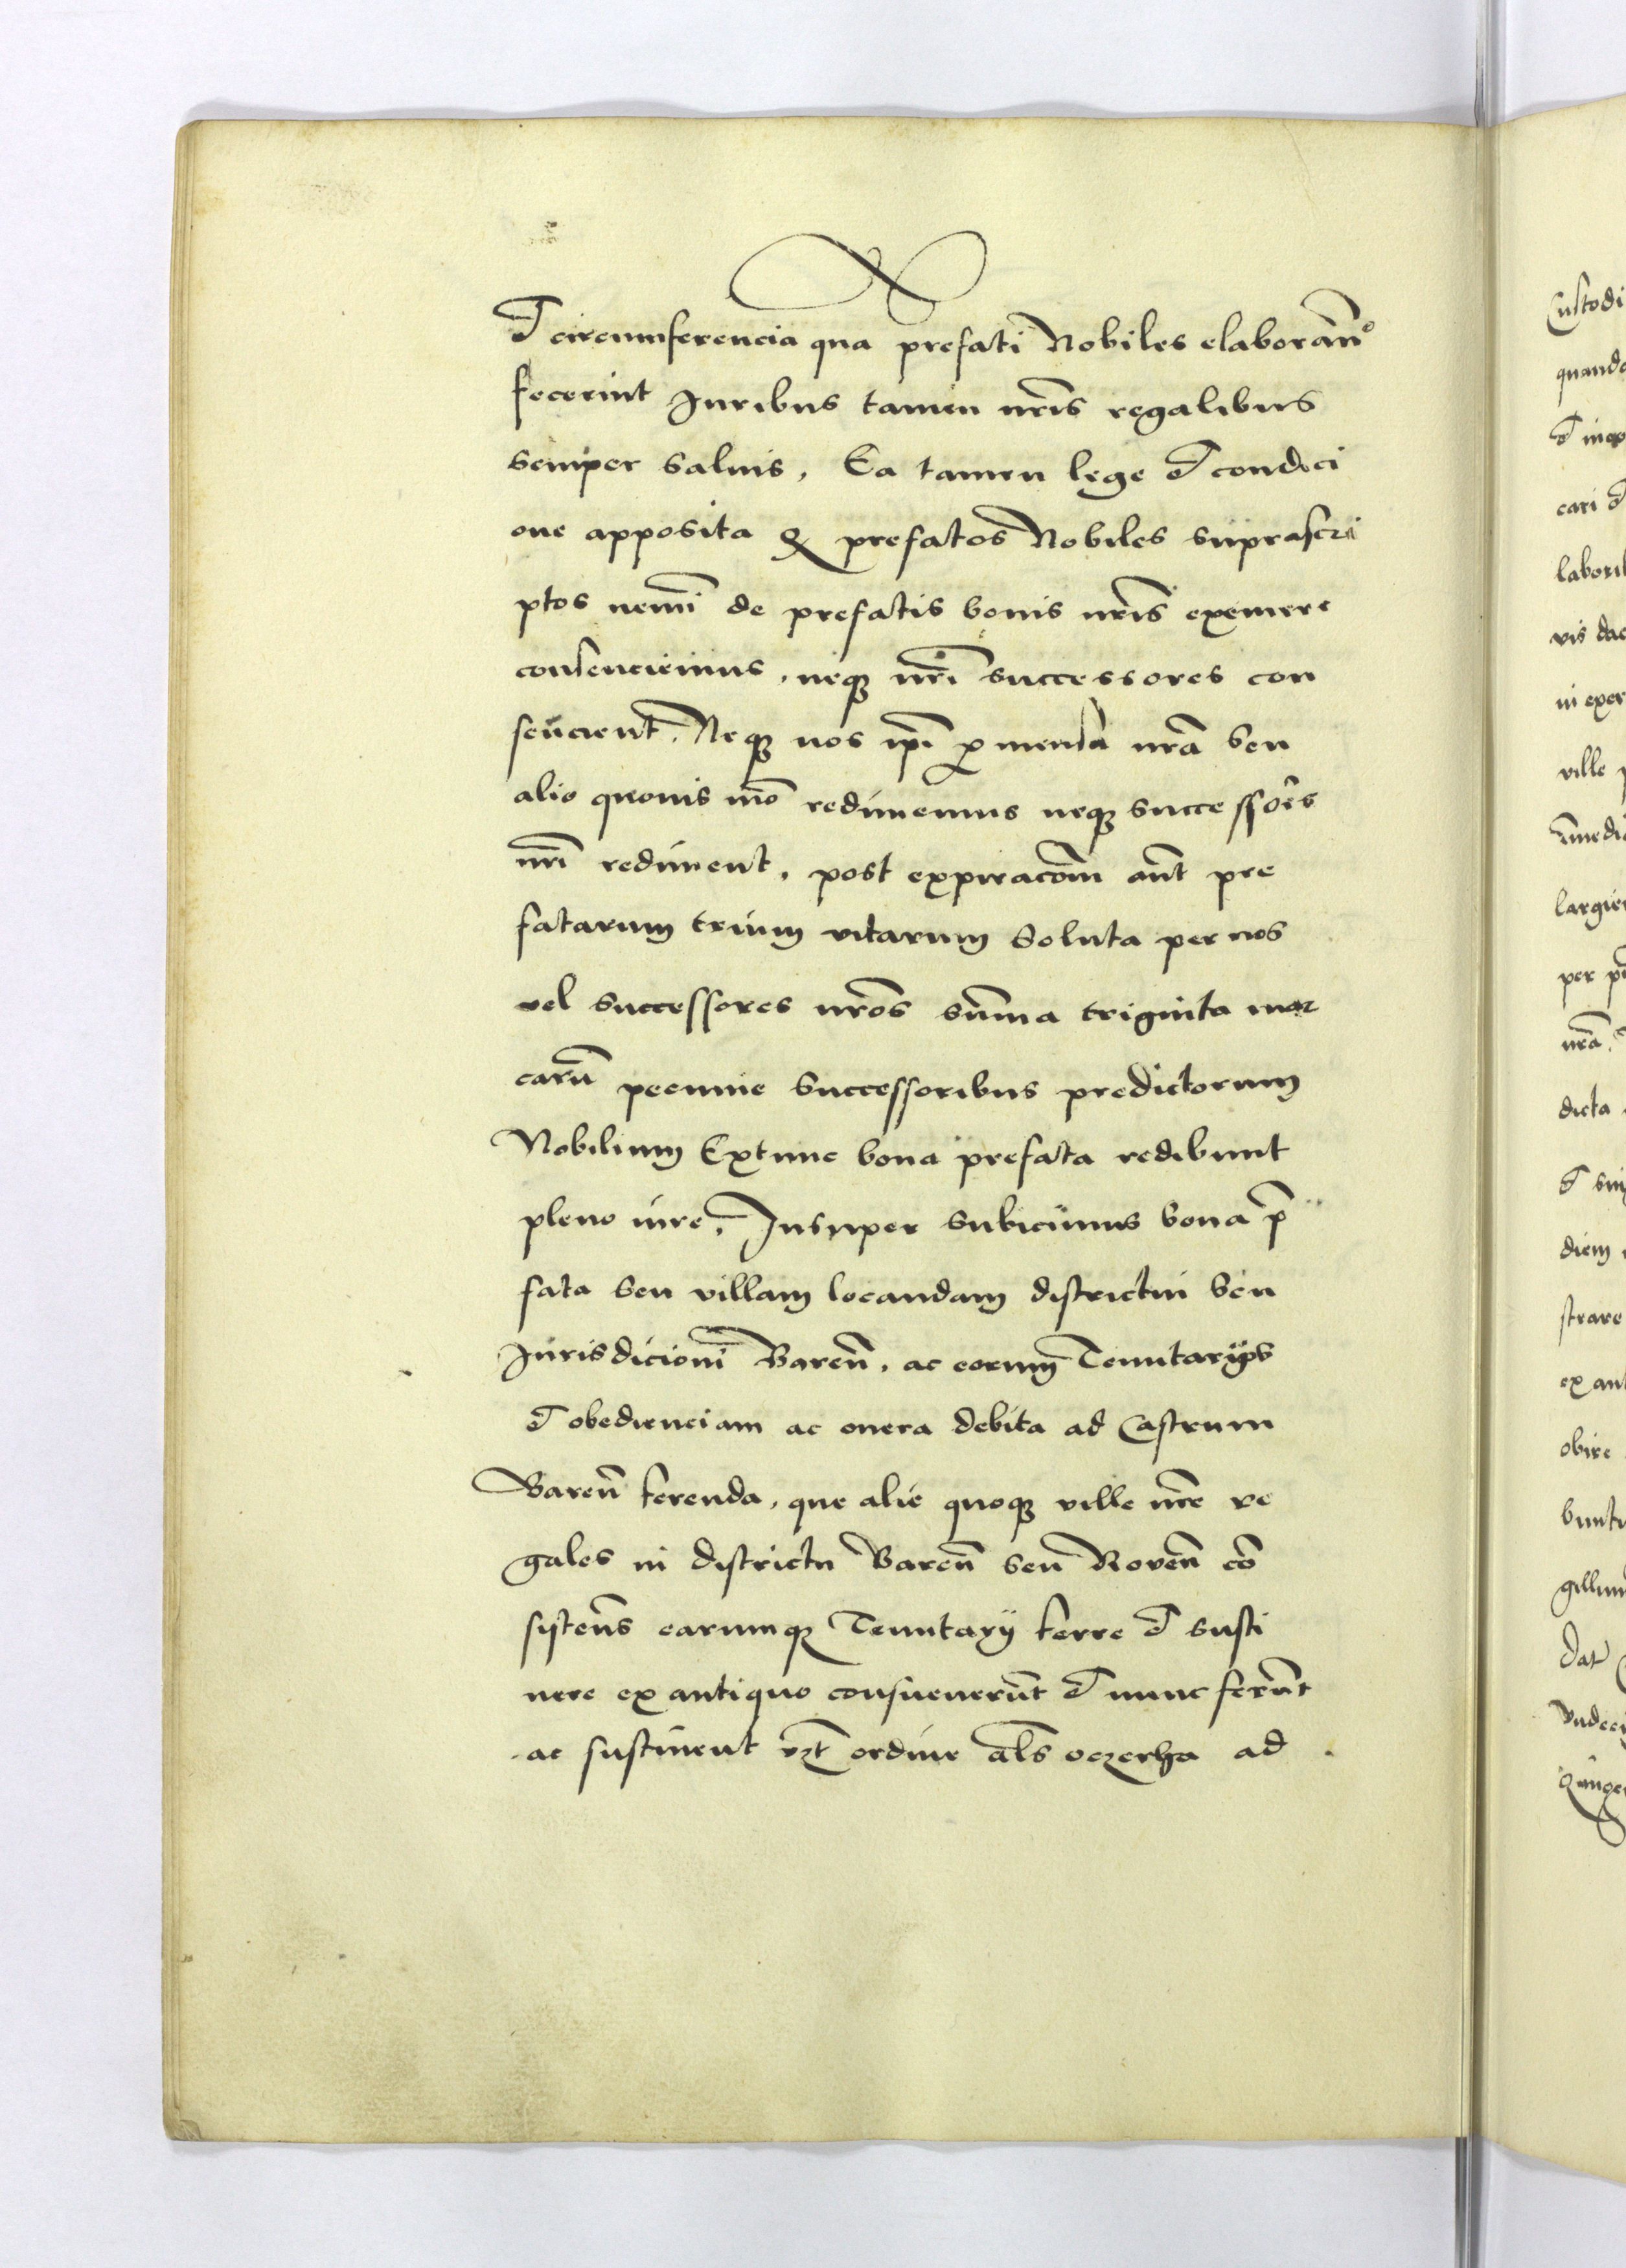 et circumferencia qua prefati Nobiles elaborarin̄
fecerint Juribus tamen nr̄is regalibus
semper saluis, Ea tamen lege et condici
one apposita q̄ prefatos Nobiles suprascri
ptos nemī de prefatis bonis nr̄is eximere
consenciemus, neqꝫ nr̄i successores con
sencient, Neqꝫ nos ip̄i ꝑ mensa nr̄a seu
alio quouis mō redimemus neqꝫ successor̄s
nr̄i rediment, post expiracōm aūt pre
fatarum trium vitarum soluta per nos
vel successores nr̄os sum̄a triginta mar
carū pecunie successoribus predictorum
Nobilium Extunc bona prefata redibunt
pleno iure, Insuper subicimus bona p̄
fata seu villam locandam districtui seu
Jurisdicioni Bareñ, ac eorum Tenutarijs
et obedienciam ac onera debita ad Castrum
Bareñ ferenda, que alie quoqꝫ ville nr̄e re
gales in districtu Bareñ seu Roveñ cō
sisteñs earumqꝫ Tenutarij ferre et susti
nere ex antiquo consueuerūt et nunc ferūt
ac sustinent vꝫt ordine al̄s oczerha ad
Custodi
quando
et in
cari et
labori
vis dac
in exer
ville p
īmedi
largie
per
nr̄a
dicta
et sui
diem
strare
ex an
obire
buntu
gillum
Dat
Vndeci